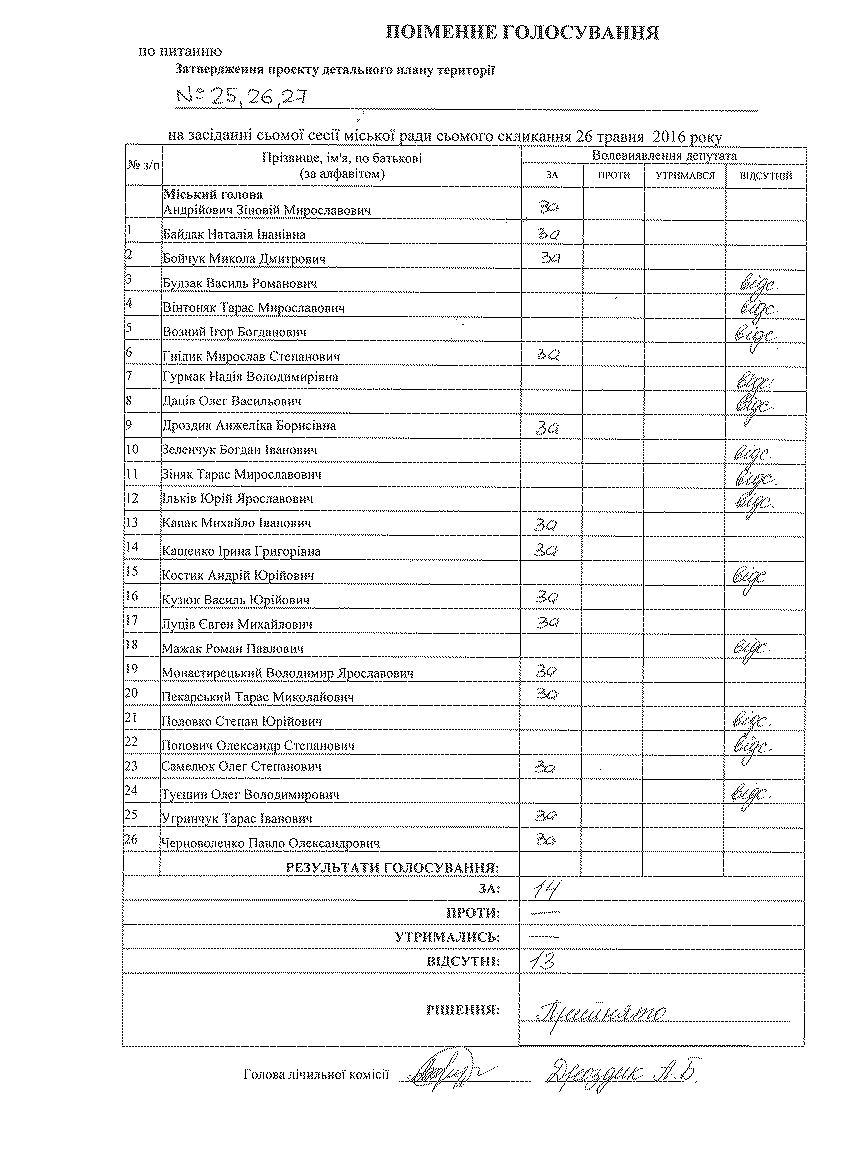 ПОІМЕННЕ ГОЛОСУВАННЯ
по питанню
Затвердження проекту детального плану території
№ 25, 26, 27
на засіданні сьомої сесії міської ради сьомого скликання 26 травня 2016 року
№ з/п Прізвище, ім'я, по батькові (за алфавітом) Волевиявлення депутата
ЗА ПРОТИ УТРИМАВСЯ ВІДСУТНІЙ
Міський голова
Андрійович Зіновій Мирославович за
1 Байдак Наталія Іванівна за
2 Бойчук Микола Дмитрович за
3 Будзак Василь Романович відс.
4 Вінтоняк Тарас Мирославович відс.
5 Возний Ігор Богданович відс.
6 Гнідик Мирослав Степанович за
7 Гурмак Надія Володимирівна відс.
8 Даців Олег Васильович відс
9 Дроздик Анжеліка Борисівна за
10 Зеленчук Богдан Іванович відс.
11 Зіняк Тарас Мирославович відс.
12 Ільків Юрій Ярославович відс.
13 Капак Михайло Іванович за
14 Кащенко Ірина Григорівна за
15 Костик Андрій Юрійович відс
16 Кузюк Василь Юрійович за
17 Луців Євген Михайлович за
18 Мажак Роман Павлович відс.
19 Монастирецький Володимир Ярославович за
20 Пекарський Тарас Миколайович за
21 Половко Степан Юрійович відс.
22 Попович Олександр Степанович відс.
23 Самелюк Олег Степанович за
24 Туєшин Олег Володимирович відс.
25 Угринчук Тарас Іванович за
26 Черноволенко Павло Олександрович за
РЕЗУЛЬТАТИ ГОЛОСУВАННЯ:
ЗА: 14
ПРОТИ: —
УТРИМАЛИСЬ: —
ВІДСУТНІ: 13
РІШЕННЯ: Прийнято
Голова лічильної комісії Дроздик А.Б.